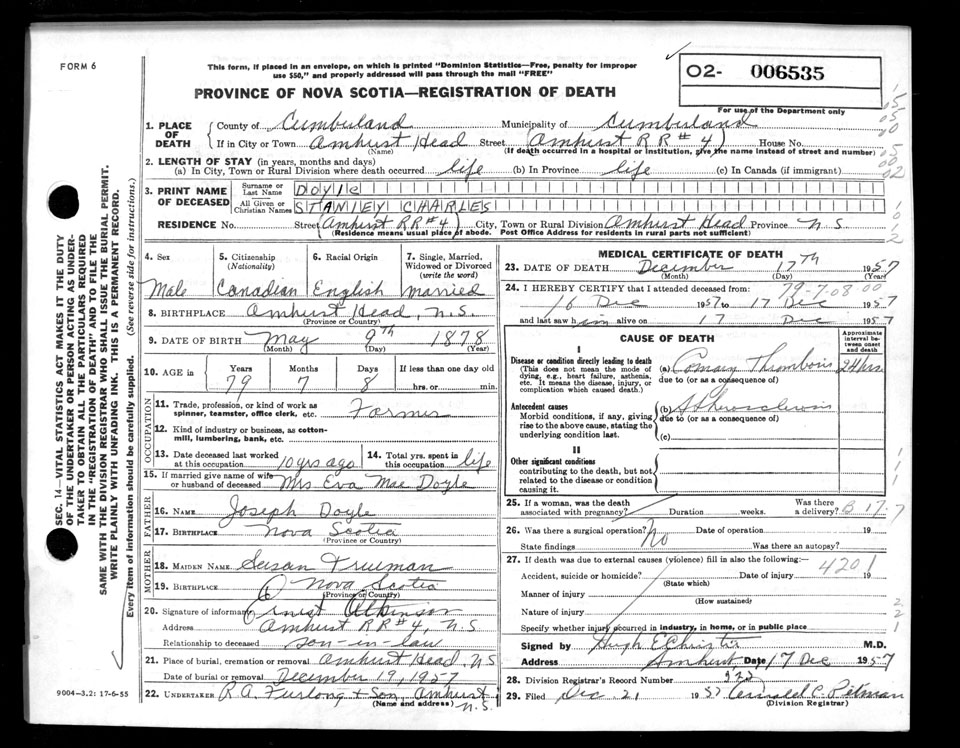 FORM 6
This form, if placed in an envelope, on which is printed "Dominion Statistics—Free, penalty for improper
use $50," and properly addressed will pass through the mail "FREE"
O2- 006535
For use of the Department only
PROVINCE OF NOVA SCOTIA—REGISTRATION OF DEATH
1. PLACE OF DEATH County of Cumberland Municipality of Cumberland
If in City or Town Amherst Head Street (Amherst RR#4) House No.
(Name) (If death occurred in a hospital or institution, give the name instead of street and number)
2. LENGTH OF STAY (in years, months and days)
(a) In City, Town or Rural Division where death occurred life (b) In Province life (c) In Canada (if immigrant)
3. PRINT NAME OF DECEASED Surname or Last Name DOYLE
All Given or Christian Names STANLEY CHARLES
RESIDENCE No. Street (Amherst RR#4) City, Town or Rural Division Amherst Head Province N.S.
(Residence means usual place of abode. Post Office Address for residents in rural parts not sufficient)
SEC. 14—VITAL STATISTICS ACT MAKES IT THE DUTY
OF THE UNDERTAKER OR PERSON ACTING AS UNDER-
TAKER TO OBTAIN ALL THE PARTICULARS REQUIRED
IN THE "REGISTRATION OF DEATH" AND TO FILE THE
SAME WITH THE DIVISION REGISTRAR WHO SHALL ISSUE THE BURIAL PERMIT.
WRITE PLAINLY WITH UNFADING INK. THIS IS A PERMANENT RECORD.
Every item of information should be carefully supplied. (See reverse side for instructions.)
4. Sex 5. Citizenship (Nationality) 6. Racial Origin 7. Single, Married, Widowed or Divorced (write the word)
Male Canadian English Married
8. BIRTHPLACE Amherst Head, N.S.
(Province or Country)
9. DATE OF BIRTH May 9th 1878
(Month) (Day) (Year)
10. AGE in Years Months Days If less than one day old
79 7 8 hrs. or min.
OCCUPATION
11. Trade, profession, or kind of work as spinner, teamster, office clerk, etc. Farmer
12. Kind of industry or business, as cotton-mill, lumbering, bank, etc.
13. Date deceased last worked at this occupation 10 yrs ago 14. Total yrs. spent in this occupation life
15. If married give name of wife or husband of deceased Mrs Eva Mae Doyle
FATHER
16. NAME Joseph Doyle
17. BIRTHPLACE Nova Scotia
(Province or Country)
MOTHER
18. MAIDEN NAME Susan Trueman
19. BIRTHPLACE Nova Scotia
(Province or Country)
20. Signature of informant Ernest Atkinson
Address Amherst RR#4, N.S.
Relationship to deceased son-in-law
21. Place of burial, cremation or removal Amherst Head, N.S
Date of burial or removal December 19, 1957
22. UNDERTAKER R.A. Furlong & Son, Amherst N.S.
(Name and address)
9004-3.2: 17-6-55
MEDICAL CERTIFICATE OF DEATH
23. DATE OF DEATH December 17th 1957
(Month) (Day) (Year)
79-7-08 00
24. I HEREBY CERTIFY that I attended deceased from:
16 Dec 1957 to 17 Dec 1957
and last saw him alive on 17 Dec 1957
CAUSE OF DEATH
Approximate interval between onset and death
I
Disease or condition directly leading to death
(This does not mean the mode of dying, e.g., heart failure, asthenia, etc. It means the disease, injury, or complication which caused death.)
(a) Coronary Thrombosis 24 hrs.
due to (or as a consequence of)
Antecedent causes
Morbid conditions, if any, giving rise to the above cause, stating the underlying condition last.
(b) Atherosclerosis
due to (or as a consequence of)
(c)
II
Other significant conditions
contributing to the death, but not related to the disease or condition causing it.
25. If a woman, was the death associated with pregnancy? Duration weeks. Was there a delivery? B 17-7
26. Was there a surgical operation? No Date of operation 19
State findings Was there an autopsy?
27. If death was due to external causes (violence) fill in also the following:—
4201
Accident, suicide or homicide? Date of injury 19
(State which)
Manner of injury
(How sustained)
Nature of injury
Specify whether injury occurred in industry, in home, or in public place
Signed by Hugh E Christie M.D.
Address Amherst, Date 17 Dec 1957
28. Division Registrar's Record Number 322
29. Filed Dec. 21 1957 C. Pitman
(Division Registrar)